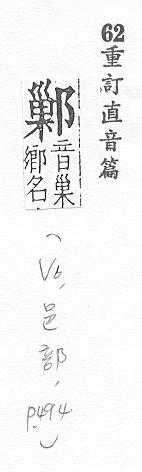 62重訂直音篇
鄛
音巢
鄉名
(V6, 邑部, p.494)